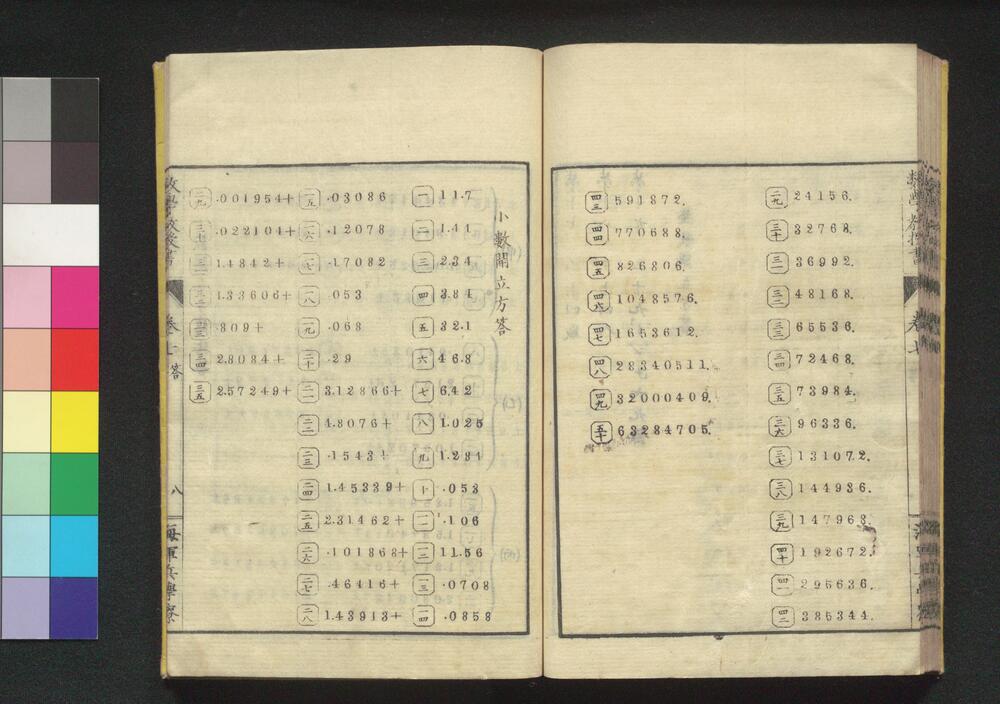 二九 24156.
三十 32768.
三一 36992.
三二 48168.
三三 65536.
三四 72468.
三五 73984.
三六 96336.
三七 131072.
三八 144936.
三九 147968.
四十 192672.
四一 295636.
四二 385344.
四三 591872.
四四 770688.
四五 826806.
四六 1048576.
四七 1653612.
四八 28340511.
四九 32000409.
五十 63284705.
小數開立方答
一 11.7
二 1.41
三 2.34
四 3.84
五 32.1
六 46.8
七 6.42
八 1.025
九 1.281
十 .053
一一 .106
一二 11.56
一三 .0708
一四 .0858
一五 .03086
一六 .12078
一七 .17082
一八 .053
一九 .068
二十 .29
二一 3.12866+
二二 4.8076+
二三 .1543+
二四 1.45339+
二五 2.31462+
二六 .101868+
二七 .46416+
二八 1.43913+
二九 .001954+
三十 .022104+
三一 1.4842+
三二 1.33606+
三三 .809+
三四 2.8084+
三五 2.57249+
卷七 答
八
海軍兵學寮